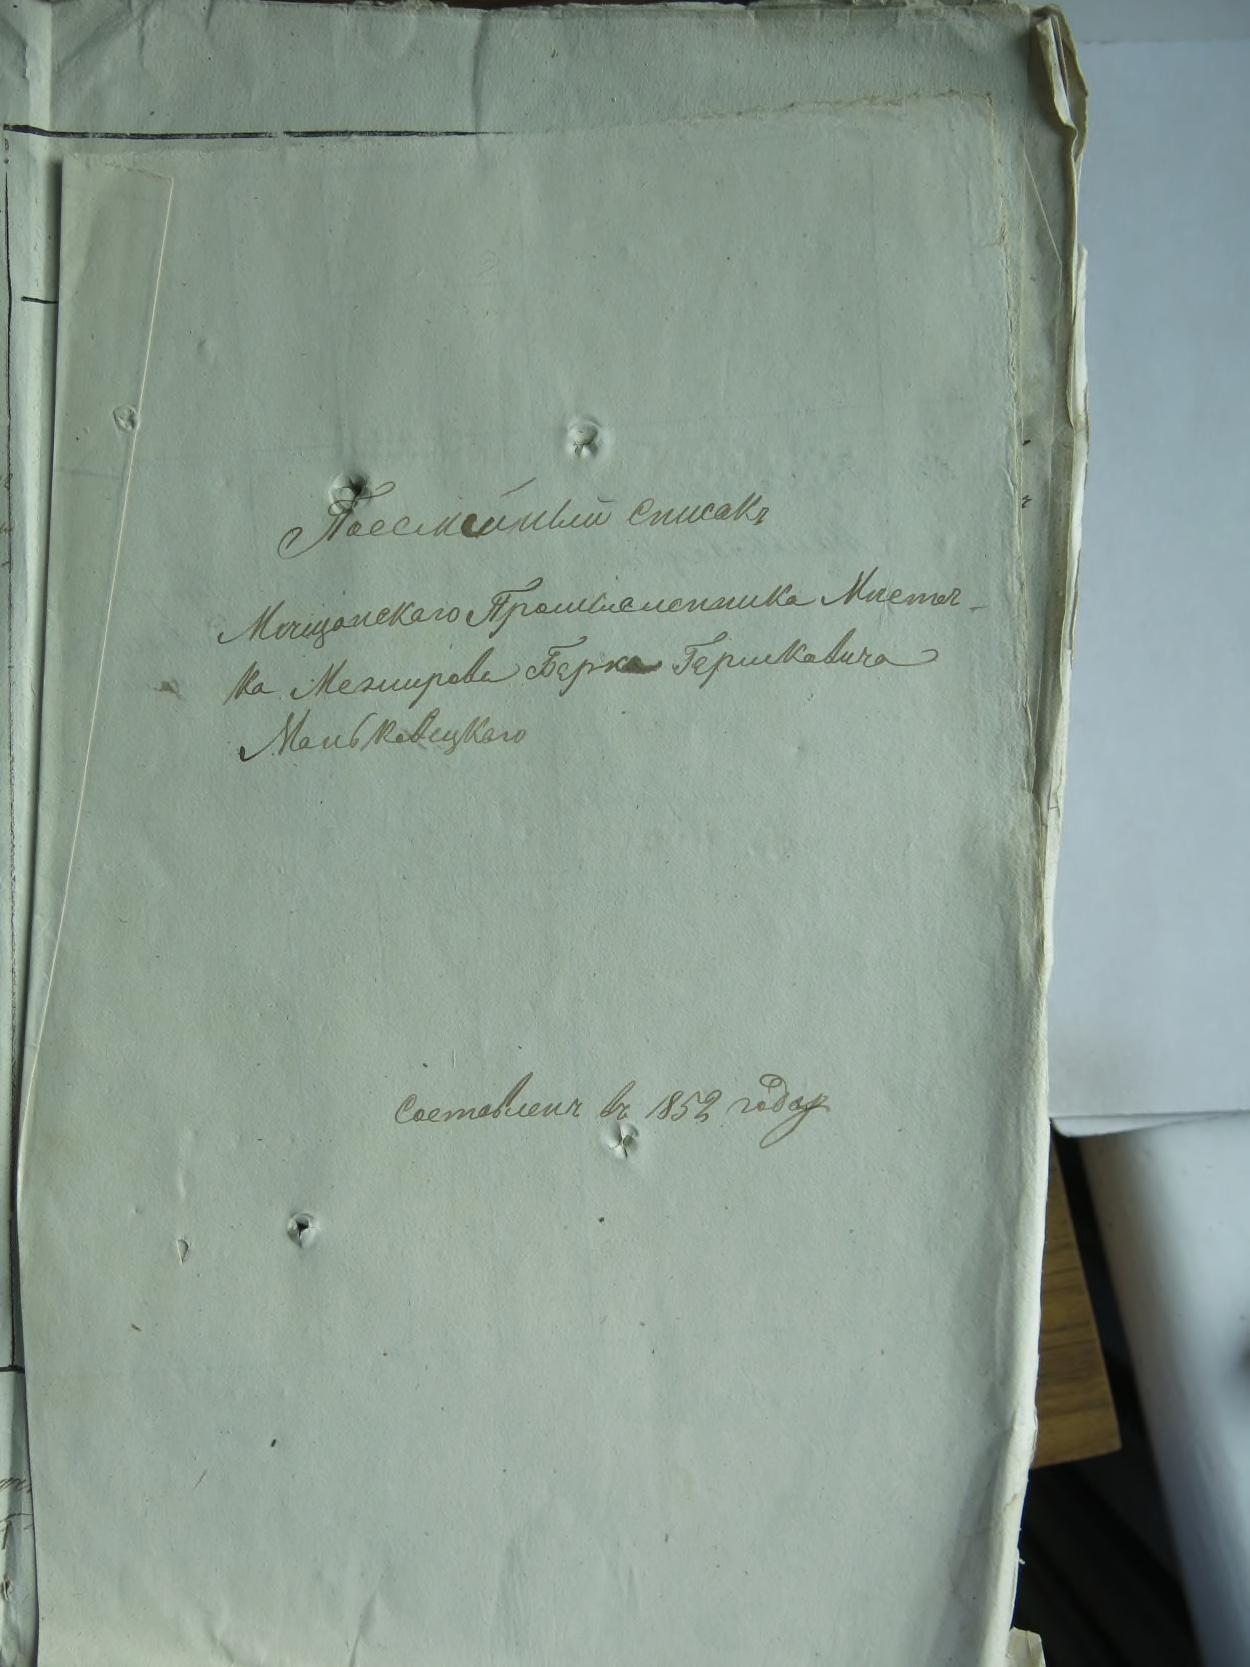 Посемейный списокъ
Мещанскаго Промышленника Мѣстеч-
ка Межирова Берка Гершковича
Маньковецкаго
составленъ въ 1852 году